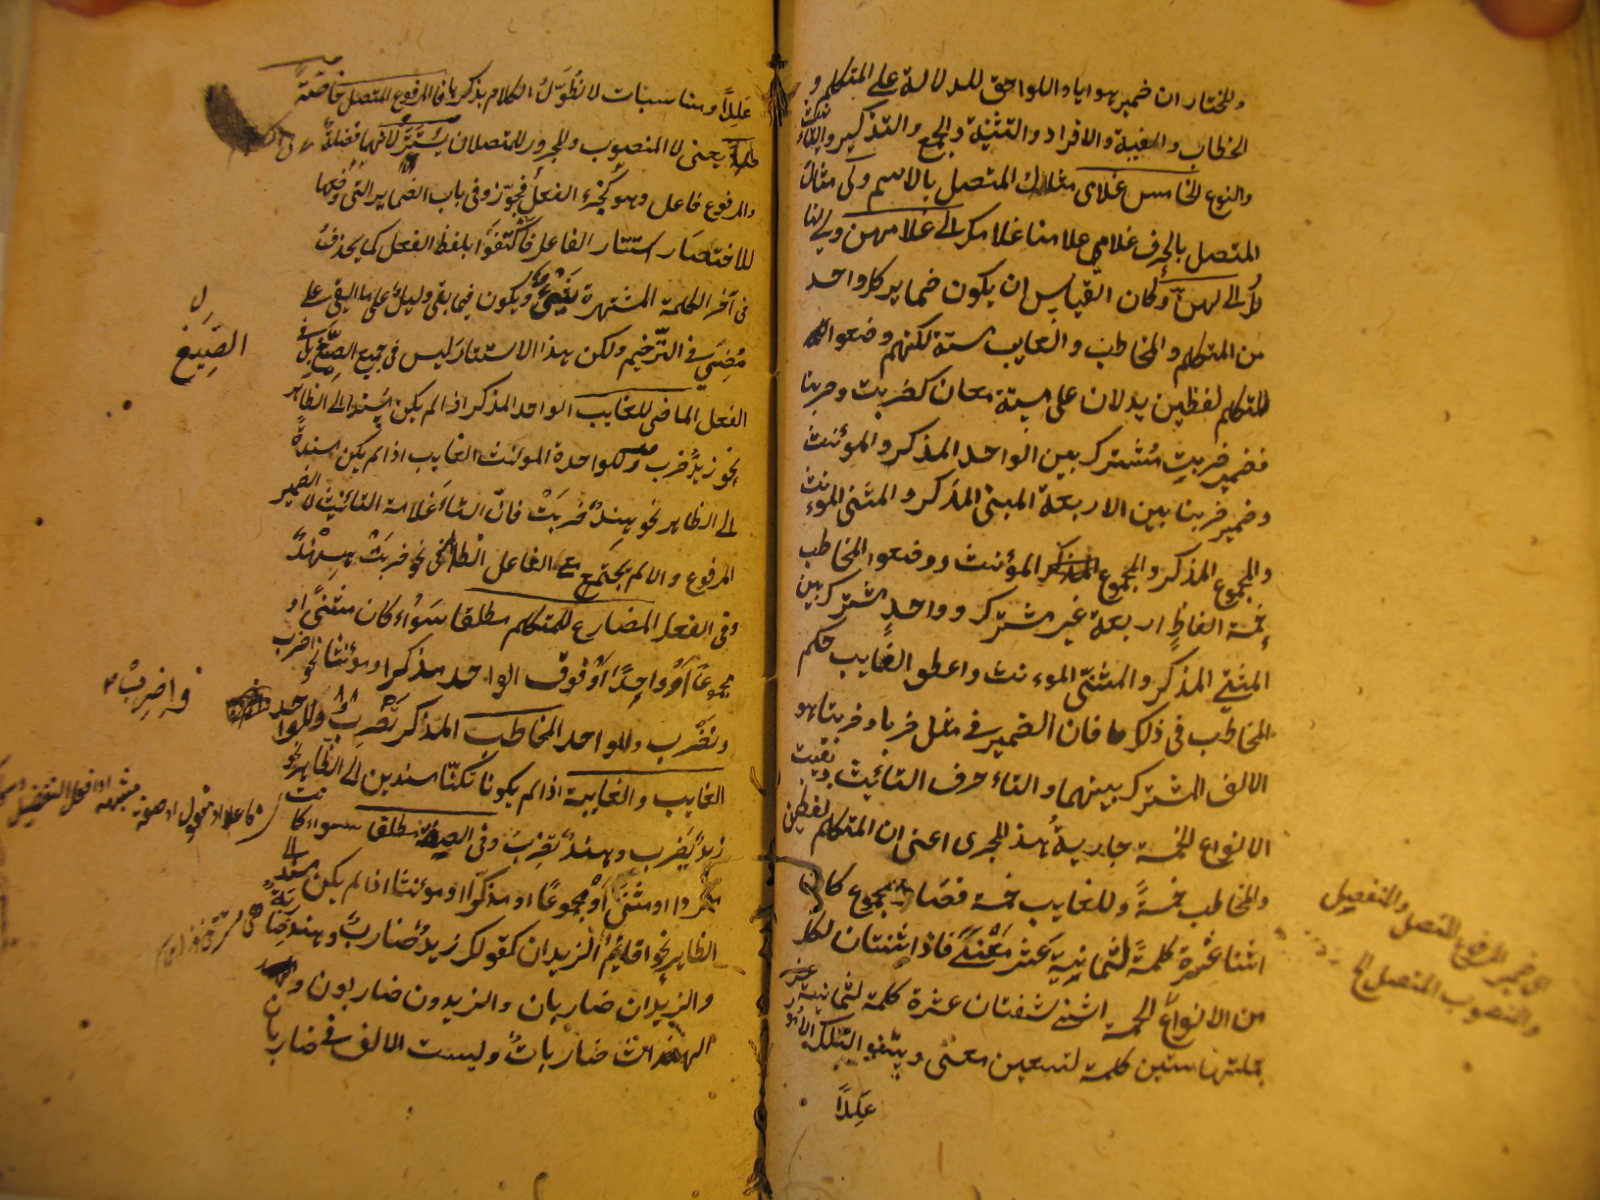 وللختار ان ضمير هو اياد اللواحق للدلالة على المتكلم و
الخطاب والغيبة والافراد والتثنية والجمع والتذكير والتانيث
والنوع الخامس غلامى مثلاث المتصل بالاسم ولى مثال
المتصل بالحرف غلامي علامنا غلامك الى غلامهن ولى لنا
لك الى لهن وكان القياس ان يكون ضماير كل واحد
من المتكلم والمخاطب والغايب ستة لكنهم وضعوا
للمتكلم لفظين يدلان على ستة معان كضربت وضربنا
فضمير ضربت مشترك بين الواحد المذكر والمؤنث
وضمير ضربنا بين الاربعة المثنى المذكر والمثنى المؤنث
والمجموع المذكر والمجموع المؤنث ووضعوا للمخاطب
خمسة الفاظ اربعة غير مشترك وواحد مشترك بين
المثنى المذكر والمثنى الموءنث واعطو الغايب حكم
المخاطب فى ذلك فان الضمير فى مثل ضربا وضربتا هو
الالف المشترك بينهما والتاء حرف التانيث وبقيت
الانواع الخمسة جارية هذ المجرى اعنى ان للمتكلم لفظين
وللمخاطب خمسة وللغايب خمسة فصار المجموع
اثنا عشرة كلمة لثمانية عشر معنى فاذا اثنتان لكل
من الانواع الخمسة اثنتان عشرة كلمة لثمانية عشر
جملتها ستين كلمة لتسعين معنى وبينوا لتلك الامور
عللاً
الى ضمير المرفوع المتصل والمنفصل
والمنصوب المتصل الخ
عللاً ومناسبات لا نطول الكلام بذكرها فالمرفوع المتصل خاصة
يعنى لا المنصوب والمجرور المتصلان يستتر لانهما فضلة
والمرفوع فاعل وهو كجزء الفعل فجوّزوا فى باب الضماير التى وضعها
للاختصار استتار الفاعل فاكتفوا بلفظ الفعل كما يحذف
فى آخر الكلمة المشتهرة شىء ويكون فيما بقى دليل على ما القى على
مضى فى الترخيم ولكن هذا الاستتار ليس فى جميع الصيغ بل فى
الفعل الماضى للغايب الواحد المذكر اذا لم يكن مسندا الى الظاهر
نحو زيد ضرب وللواحدة المؤنث الغايب اذا لم يكن مسندة
الى الظاهر نحو هند ضربت فان التاء علامة التانيث لا الضمير
المرفوع والا لم يجتمع مع الفاعل الظاهر فى نحو ضربت هند
وفى الفعل المضارع للمتكلم مطلقا سواء كان مثنى او
مجموعا او واحدا او فوق الواحد مذكرا او مؤنثا نحو اضرب
ونضرب وللواحد المخاطب المذكر تضرب وللواحد
الغايب والغايبة اذا لم يكونا مسندين الى الظاهر نحو
زيد يضرب وهند تضرب وفى الصفة مطلقا سواء كانت
مفردا او مثنى او مجموعا او مذكرا او مؤنثا اذا لم يكن مسند الى
الظاهر نحو اقايم الزيدان كقولك زيد ضارب وهند ضاربة
والزيدان ضاربان والزيدون ضاربون و
الهندات ضاربات وليست الالف فى ضاربان
الصيغ
واضرب
فاعلا او مفعول او صفة مشبهة او افعل التفضيل